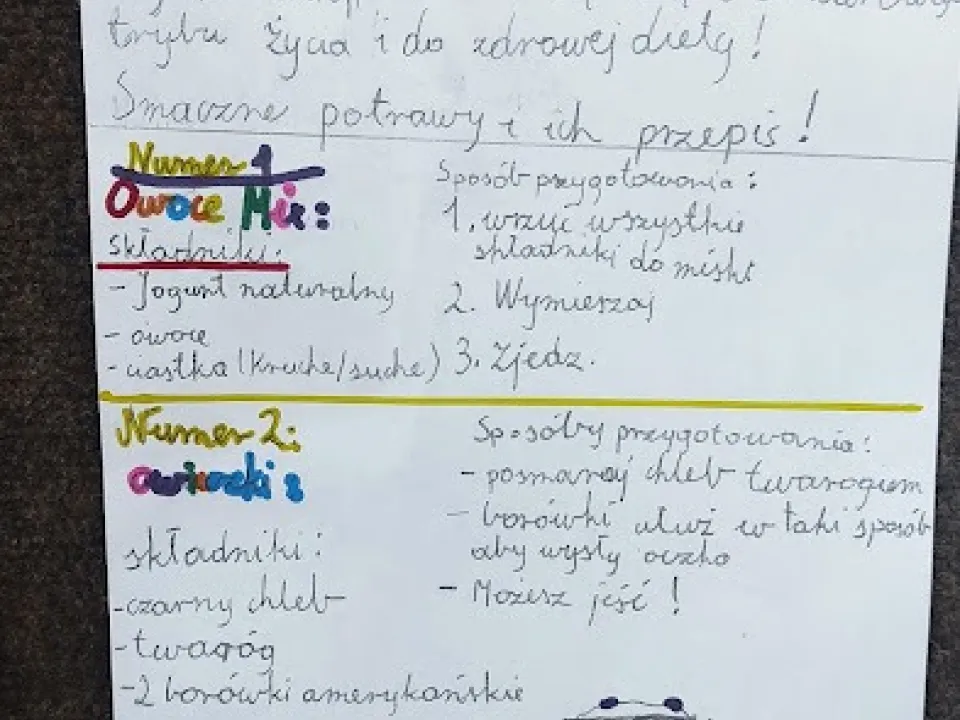 trybu życia i do zdrowej diety!
Smaczne potrawy i ich przepis!
Numer 1
Owoce Mix:
składniki:
- Jogurt naturalny
- owoce
- ciastka (kruche/suche)
Sposób przygotowania:
1. wrzuć wszystkie
składniki do miski
2. Wymieszaj
3. Zjedz.
Numer 2:
składniki:
- czarny chleb
- twaróg
- 2 borówki amerykańskie
Sposóby przygotowania:
- posmaruj chleb twarogiem
- borówki ułuż w taki sposób
aby wyszły oczka
- Możesz jeść!